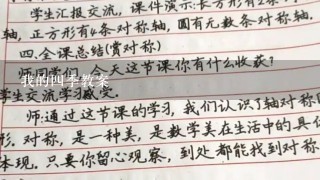 学生汇报交流,课件演示:长方形有2条对
轴,正方形有4条对称轴,圆有无数条对称轴.
四.全课总结(赏对称)
师:同学们,今天这节课你有什么收获?
我的四季教案
学生交流学习感受.
师:通过这节课的学习,我们认识了轴对称图
形.对称,是一种美,是数学美在生活中的具体
体现.只要你留心观察,到处都能找到对称